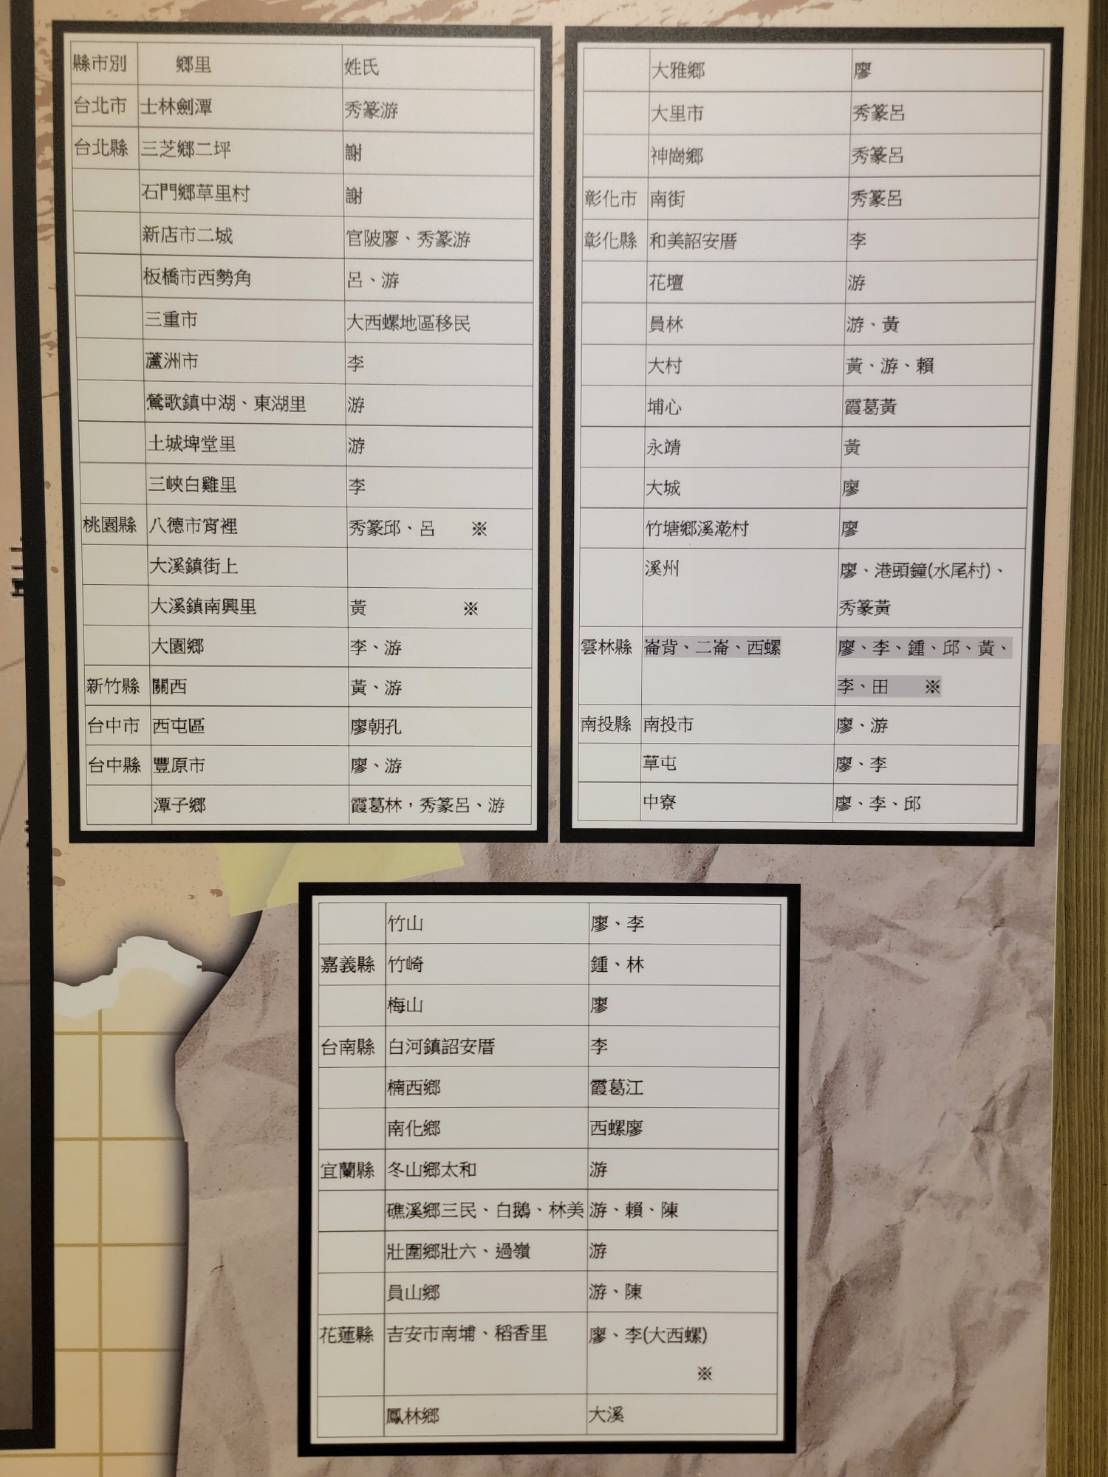 縣市別 鄉里 姓氏
台北市 士林劍潭 秀篆游
台北縣 三芝鄉二坪 謝
石門鄉草里村 謝
新店市二城 官陂廖、秀篆游
板橋市西勢角 呂、游
三重市 大西螺地區移民
蘆洲市 李
鶯歌鎮中湖、東湖里 游
土城埤堂里 游
三峽白雞里 李
桃園縣 八德市宵裡 秀篆邱、呂 ※
大溪鎮街上
大溪鎮南興里 黃 ※
大園鄉 李、游
新竹縣 關西 黃、游
台中市 西屯區 廖朝孔
台中縣 豐原市 廖、游
潭子鄉 霞葛林，秀篆呂、游
大雅鄉 廖
大里市 秀篆呂
神崗鄉 秀篆呂
彰化市 南街 秀篆呂
彰化縣 和美詔安厝 李
花壇 游
員林 游、黃
大村 黃、游、賴
埔心 霞葛黃
永靖 黃
大城 廖
竹塘鄉溪墘村 廖
溪州 廖、港頭鐘(水尾村)、
秀篆黃
雲林縣 崙背、二崙、西螺 廖、李、鍾、邱、黃、
李、田 ※
南投縣 南投市 廖、游
草屯 廖、李
中寮 廖、李、邱
竹山 廖、李
嘉義縣 竹崎 鍾、林
梅山 廖
台南縣 白河鎮詔安厝 李
楠西鄉 霞葛江
南化鄉 西螺廖
宜蘭縣 冬山鄉太和 游
礁溪鄉三民、白鵝、林美 游、賴、陳
壯圍鄉壯六、過嶺 游
員山鄉 游、陳
花蓮縣 吉安市南埔、稻香里 廖、李(大西螺)
※
鳳林鄉 大溪